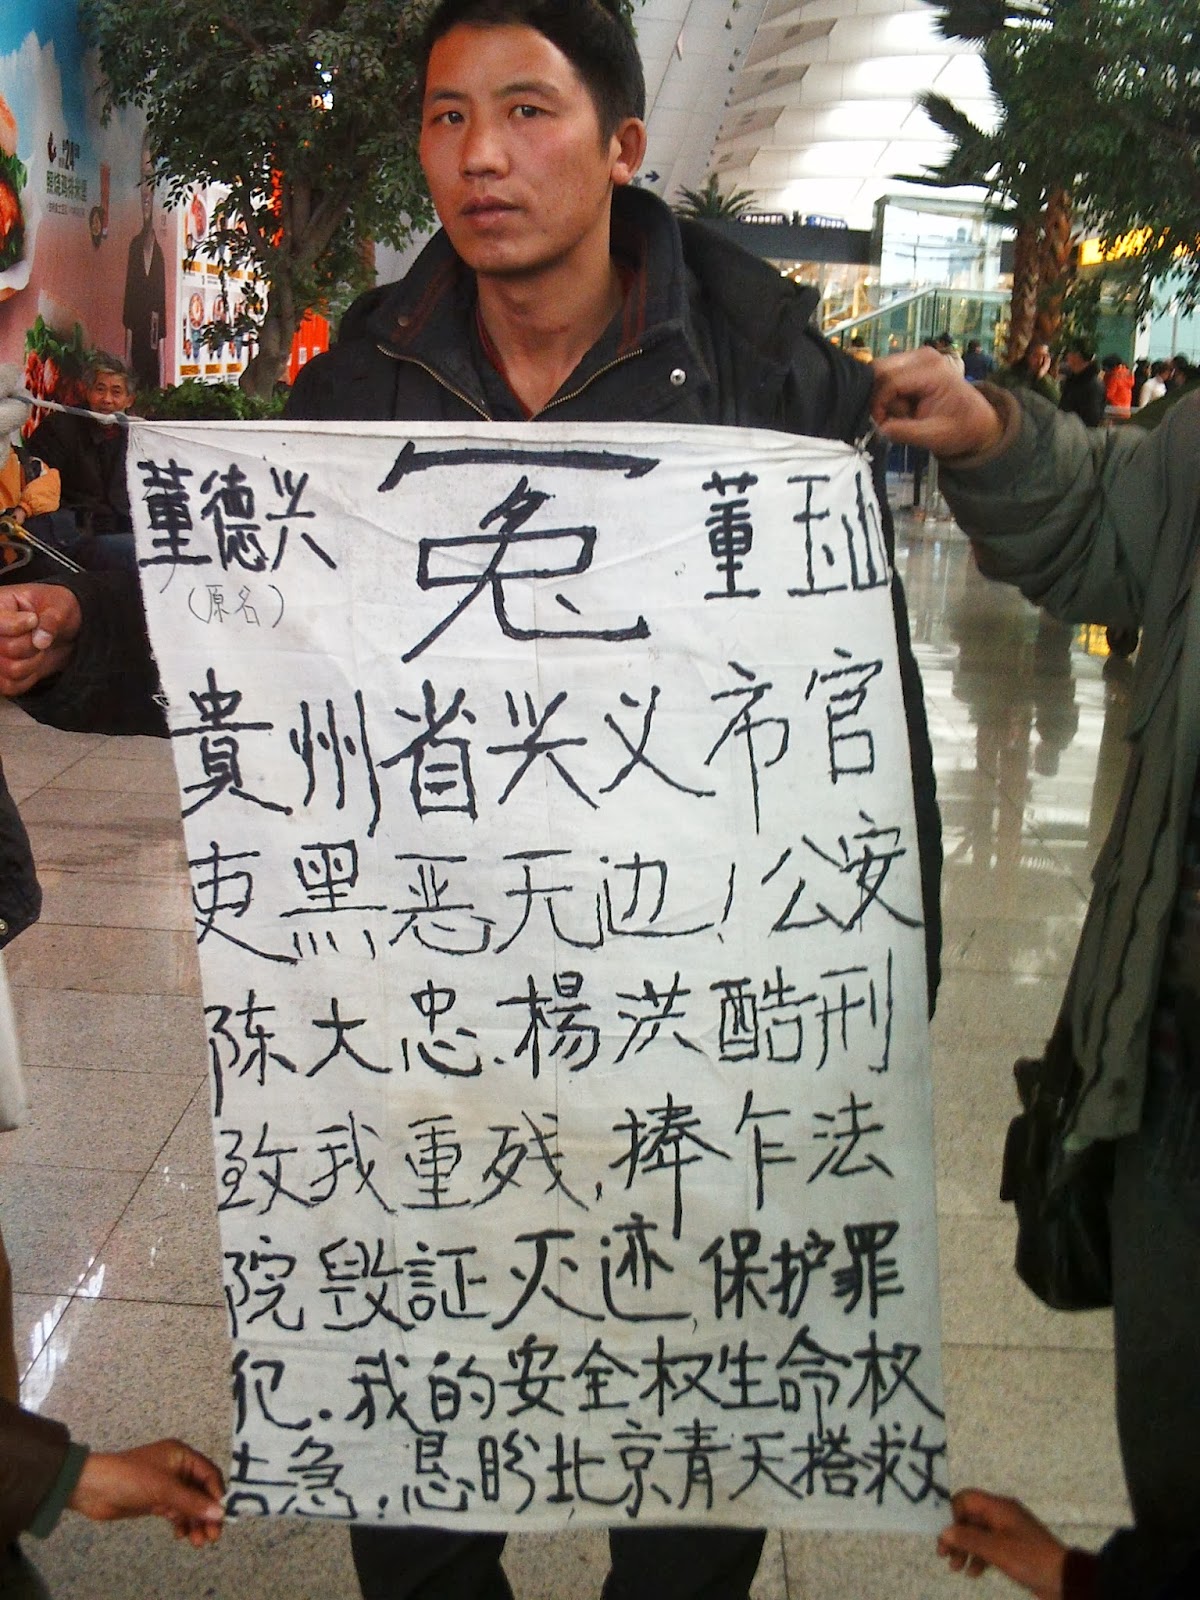 董德兴 冤 董玉山
（原名）
貴州省兴义市官
吏黑恶无边！公安
陈大忠.楊洪酷刑
致我重残,捧乍法
院毁証灭迹,保护罪
犯.我的安全权生命权
告急！恳盼北京青天搭救